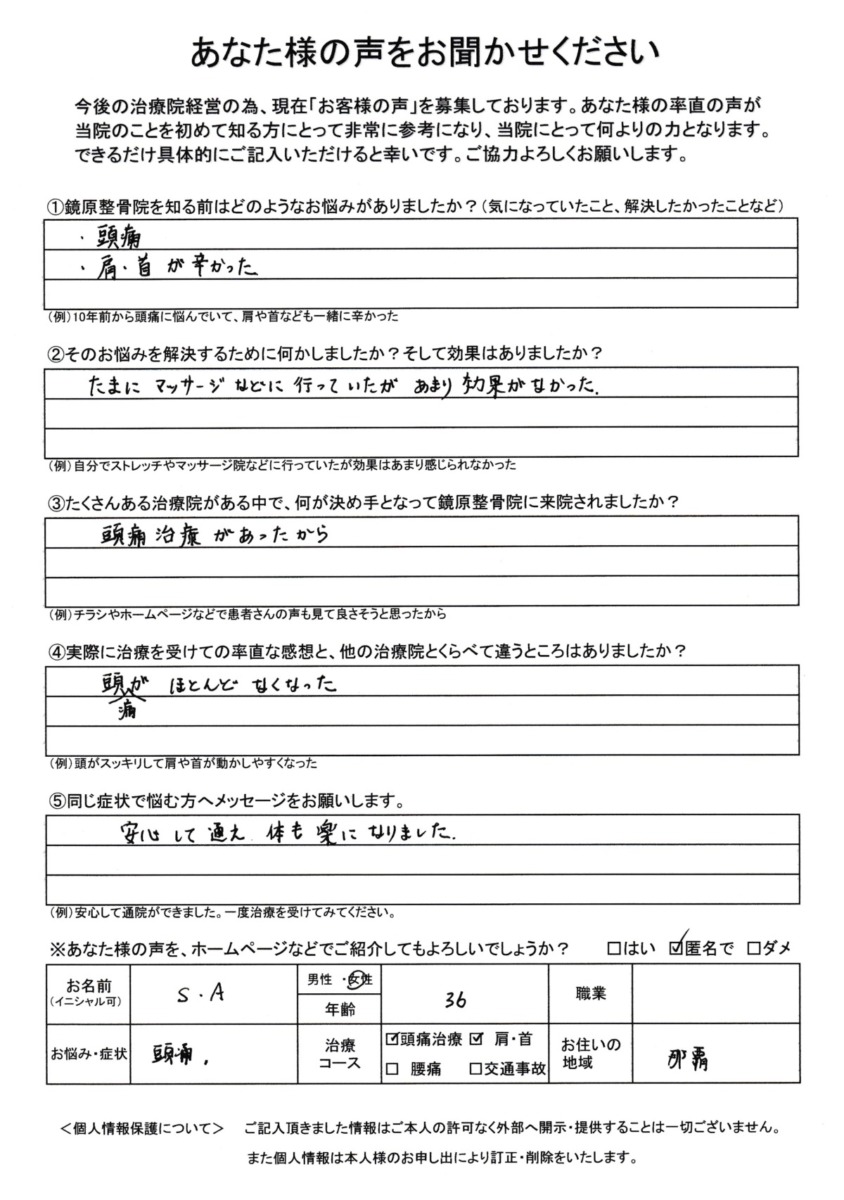 あなた様の声をお聞かせください
今後の治療院経営の為、現在「お客様の声」を募集しております。あなた様の率直の声が
当院のことを初めて知る方にとって非常に参考になり、当院にとって何よりの力となります。
できるだけ具体的にご記入いただけると幸いです。ご協力よろしくお願いします。
①鏡原整骨院を知る前はどのようなお悩みがありましたか？（気になっていたこと、解決したかったことなど）
・頭痛
・肩・首が辛かった
（例）10年前から頭痛に悩んでいて、肩や首なども一緒に辛かった
②そのお悩みを解決するために何かしましたか？そして効果はありましたか？
たまにマッサージなどに行っていたがあまり効果がなかった.
（例）自分でストレッチやマッサージ院などに行っていたが効果はあまり感じられなかった
③たくさんある治療院がある中で、何が決め手となって鏡原整骨院に来院されましたか？
頭痛治療があったから
（例）チラシやホームページなどで患者さんの声も見て良さそうと思ったから
④実際に治療を受けての率直な感想と、他の治療院とくらべて違うところはありましたか？
頭がほとんどなくなった
痛
（例）頭がスッキリして肩や首が動かしやすくなった
⑤同じ症状で悩む方へメッセージをお願いします。
安心して通え体も楽になりました.
（例）安心して通院ができました。一度治療を受けてみてください。
※あなた様の声を、ホームページなどでご紹介してもよろしいでしょうか？ □はい ☑匿名で □ダメ
お名前
（イニシャル可）
S・A
男性・女性
年齢
36
職業
お悩み・症状
頭痛.
治療
コース
☑頭痛治療 ☑肩・首
□腰痛 □交通事故
お住いの
地域
那覇
＜個人情報保護について＞ ご記入頂きました情報はご本人の許可なく外部へ開示・提供することは一切ございません。
また個人情報は本人様のお申し出により訂正・削除をいたします。